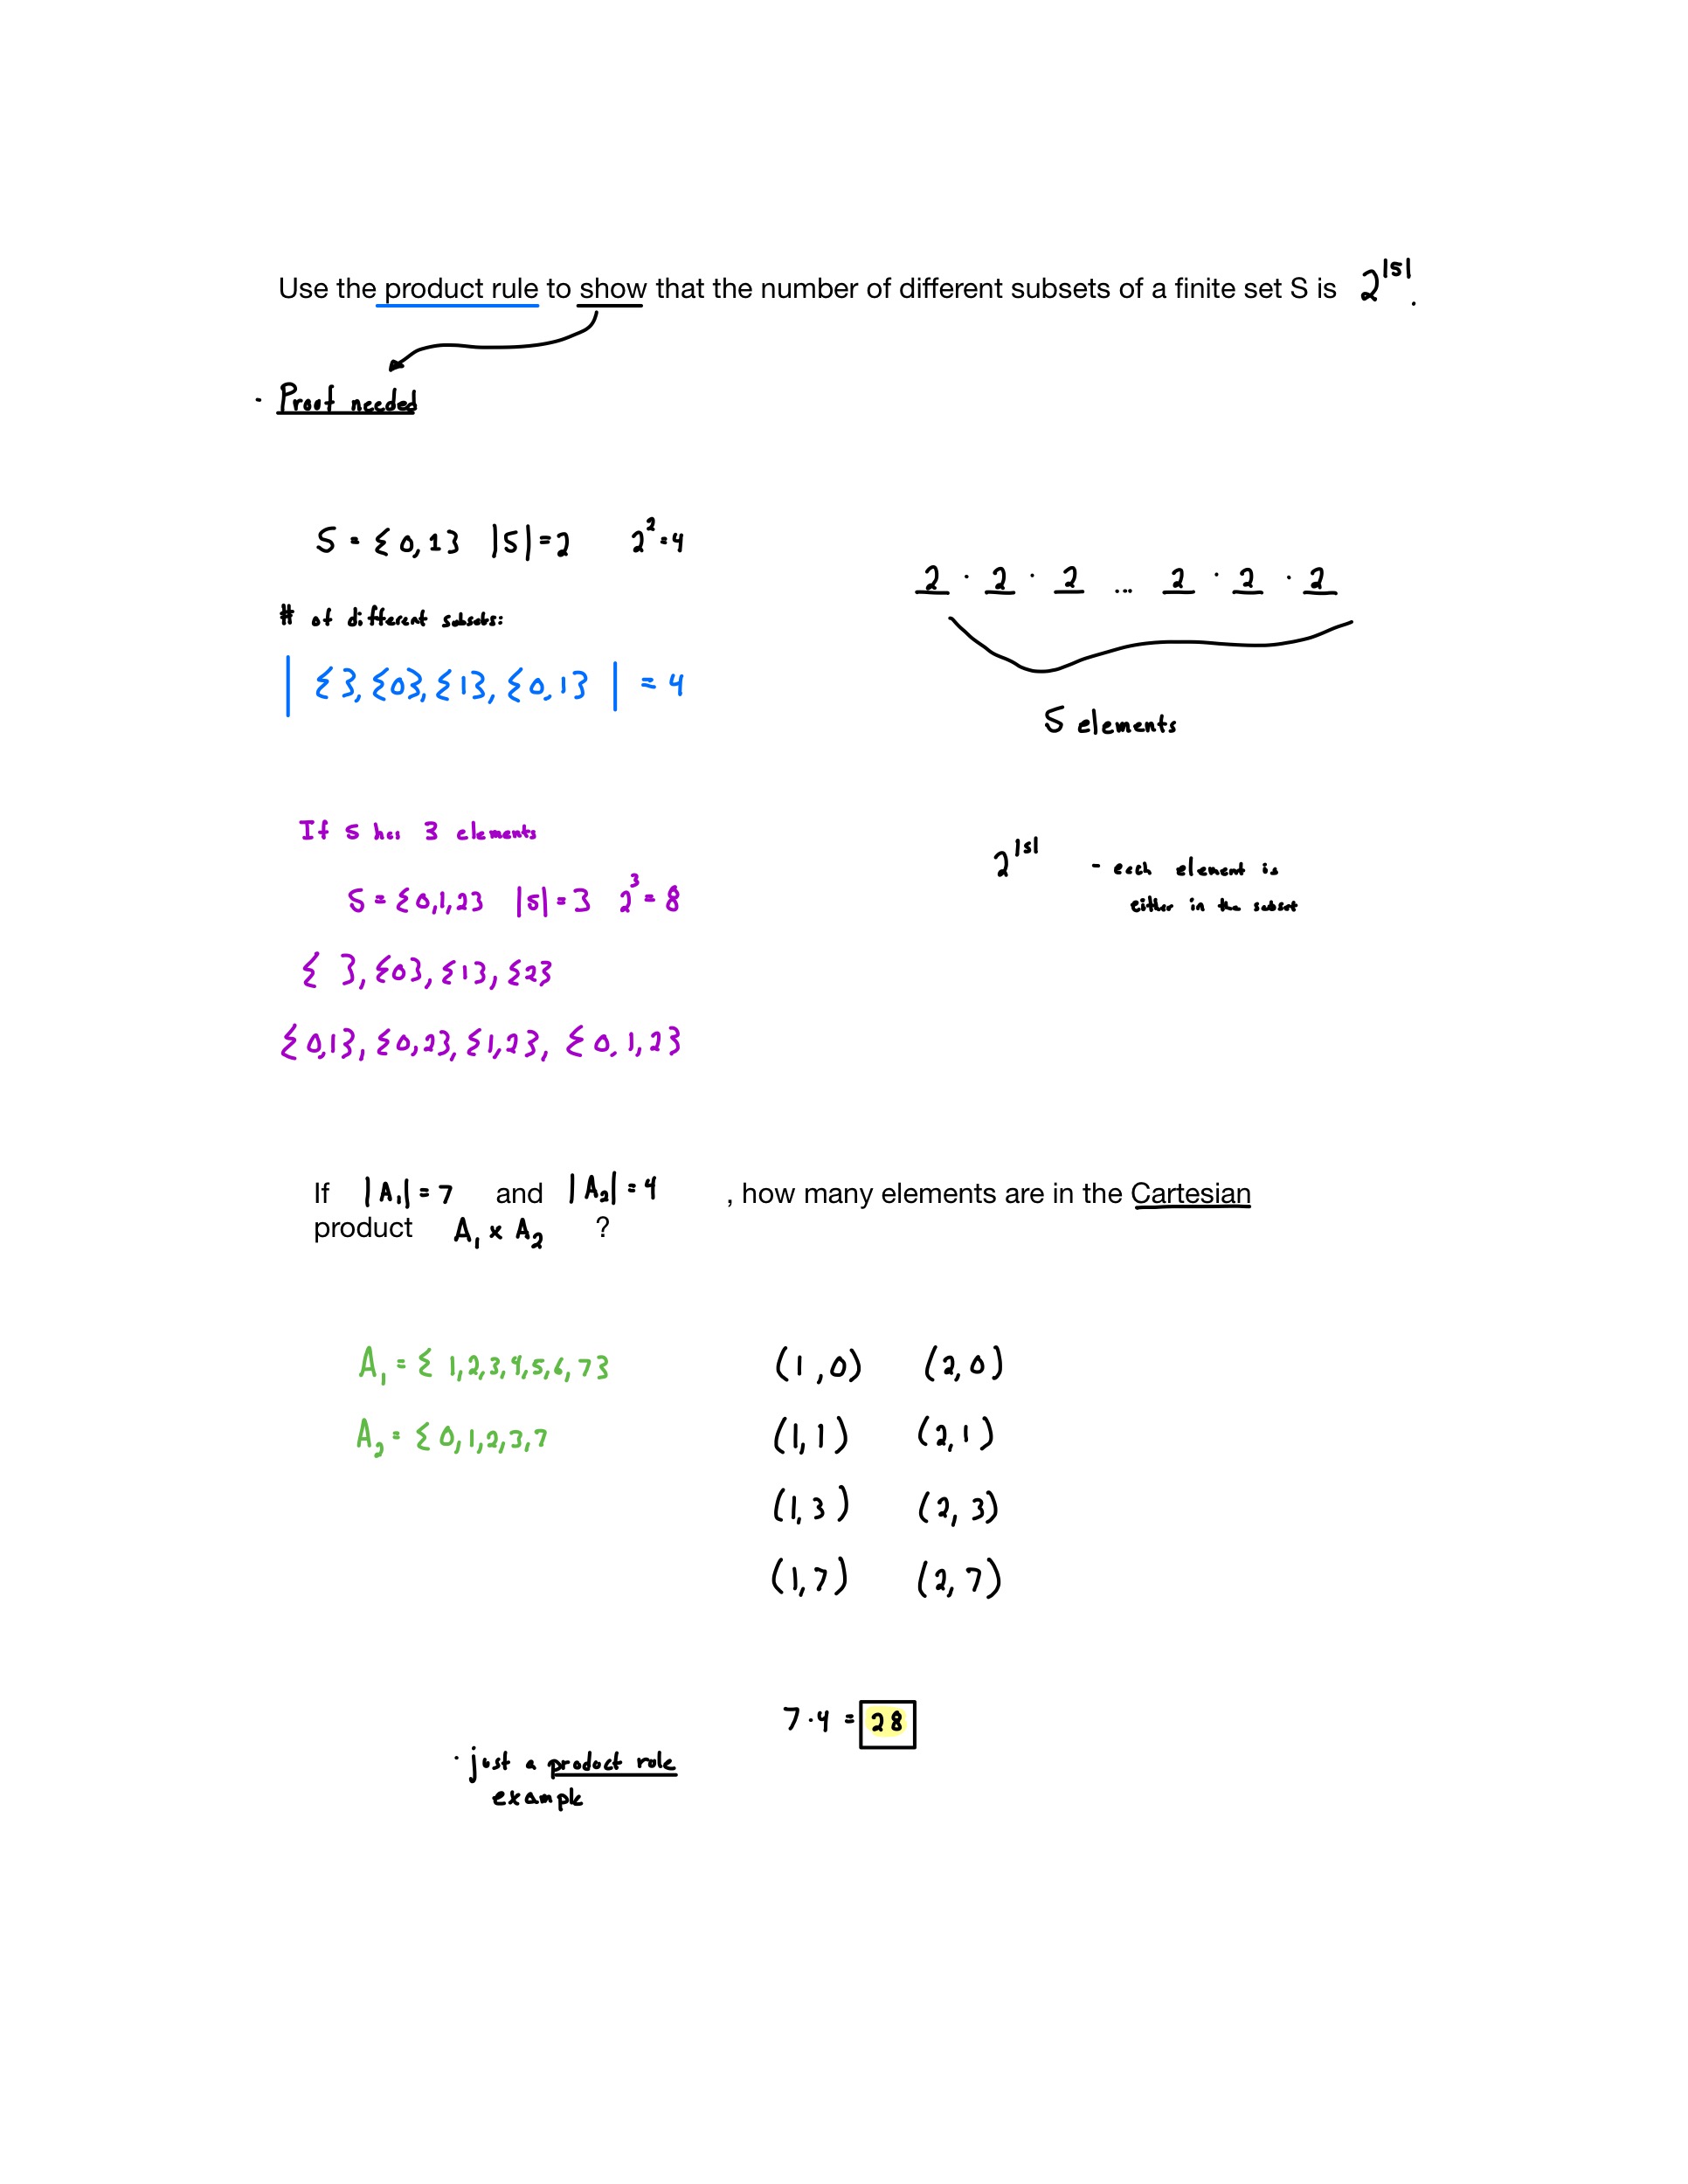 Use the product rule to show that the number of different subsets of a finite set S is 2^|S|.
· Proof needed
S = {0,1} |S| = 2 2^2 = 4
# of different subsets:
| { }, {0}, {1}, {0,1} | = 4
2 · 2 · 2 ... 2 · 2 · 2
S elements
If S has 3 elements
S = {0,1,2} |S| = 3 2^3 = 8
{ }, {0}, {1}, {2}
{0,1}, {0,2}, {1,2}, {0,1,2}
2^|S| - each element is
either in the subset
If |A₁| = 7 and |A₂| = 4 , how many elements are in the Cartesian
product A₁ x A₂ ?
A₁ = { 1,2,3,4,5,6,7}
A₂ = { 0,1,2,3,7
(1,0) (2,0)
(1,1) (2,1)
(1,3) (2,3)
(1,7) (2,7)
7·4 = 28
· just a product rule
example